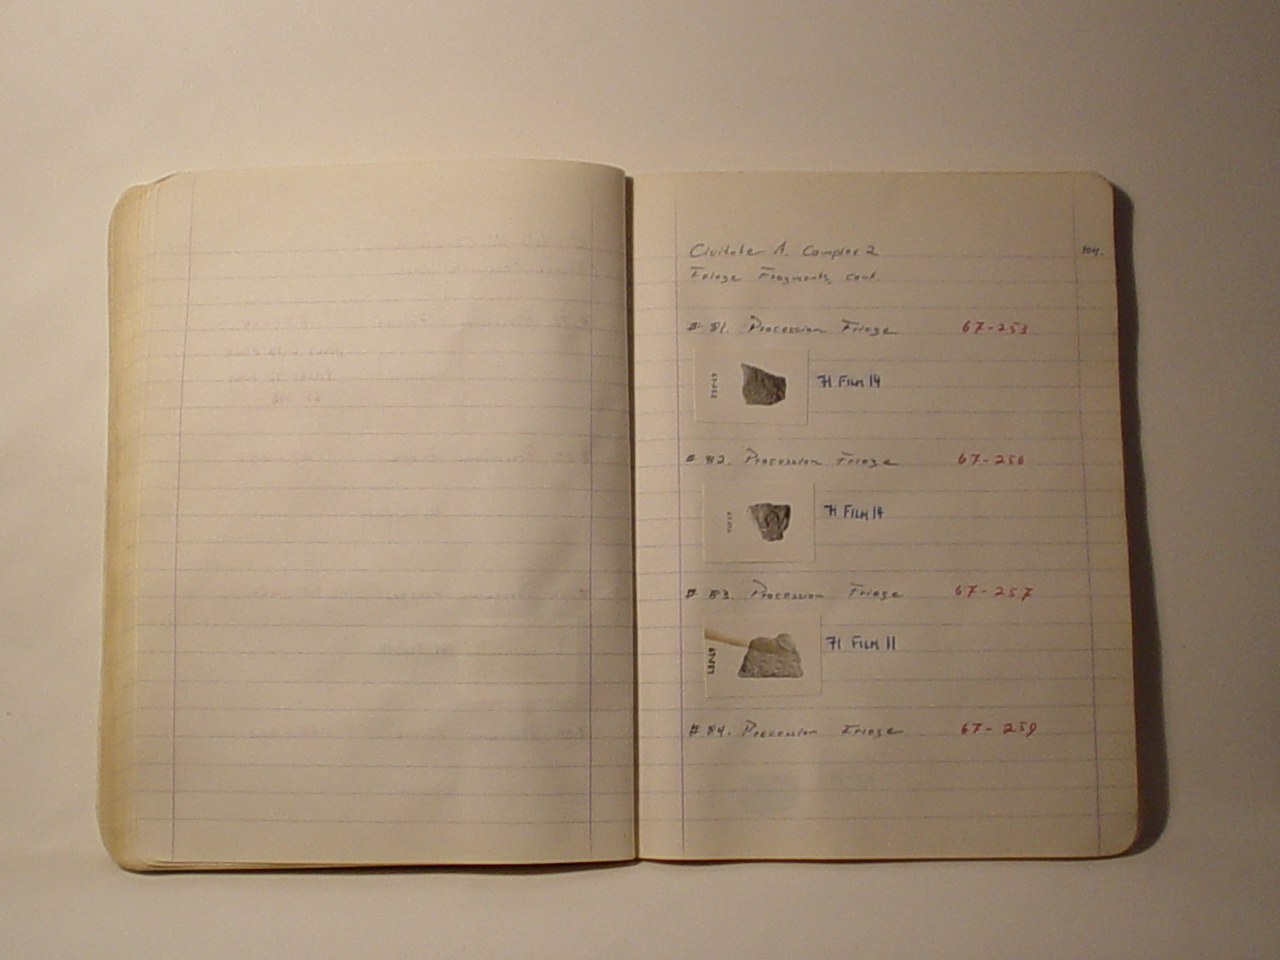 Civitate A. Complex 2
104.
Frieze Fragments, cont.
# 81. Procession Frieze 67-253
71 FILM 14
# 82. Procession Frieze 67-256
71 FILM 14
# 83. Procession Frieze 67-257
67-257
71 FILM 11
# 84. Procession Frieze 67-259